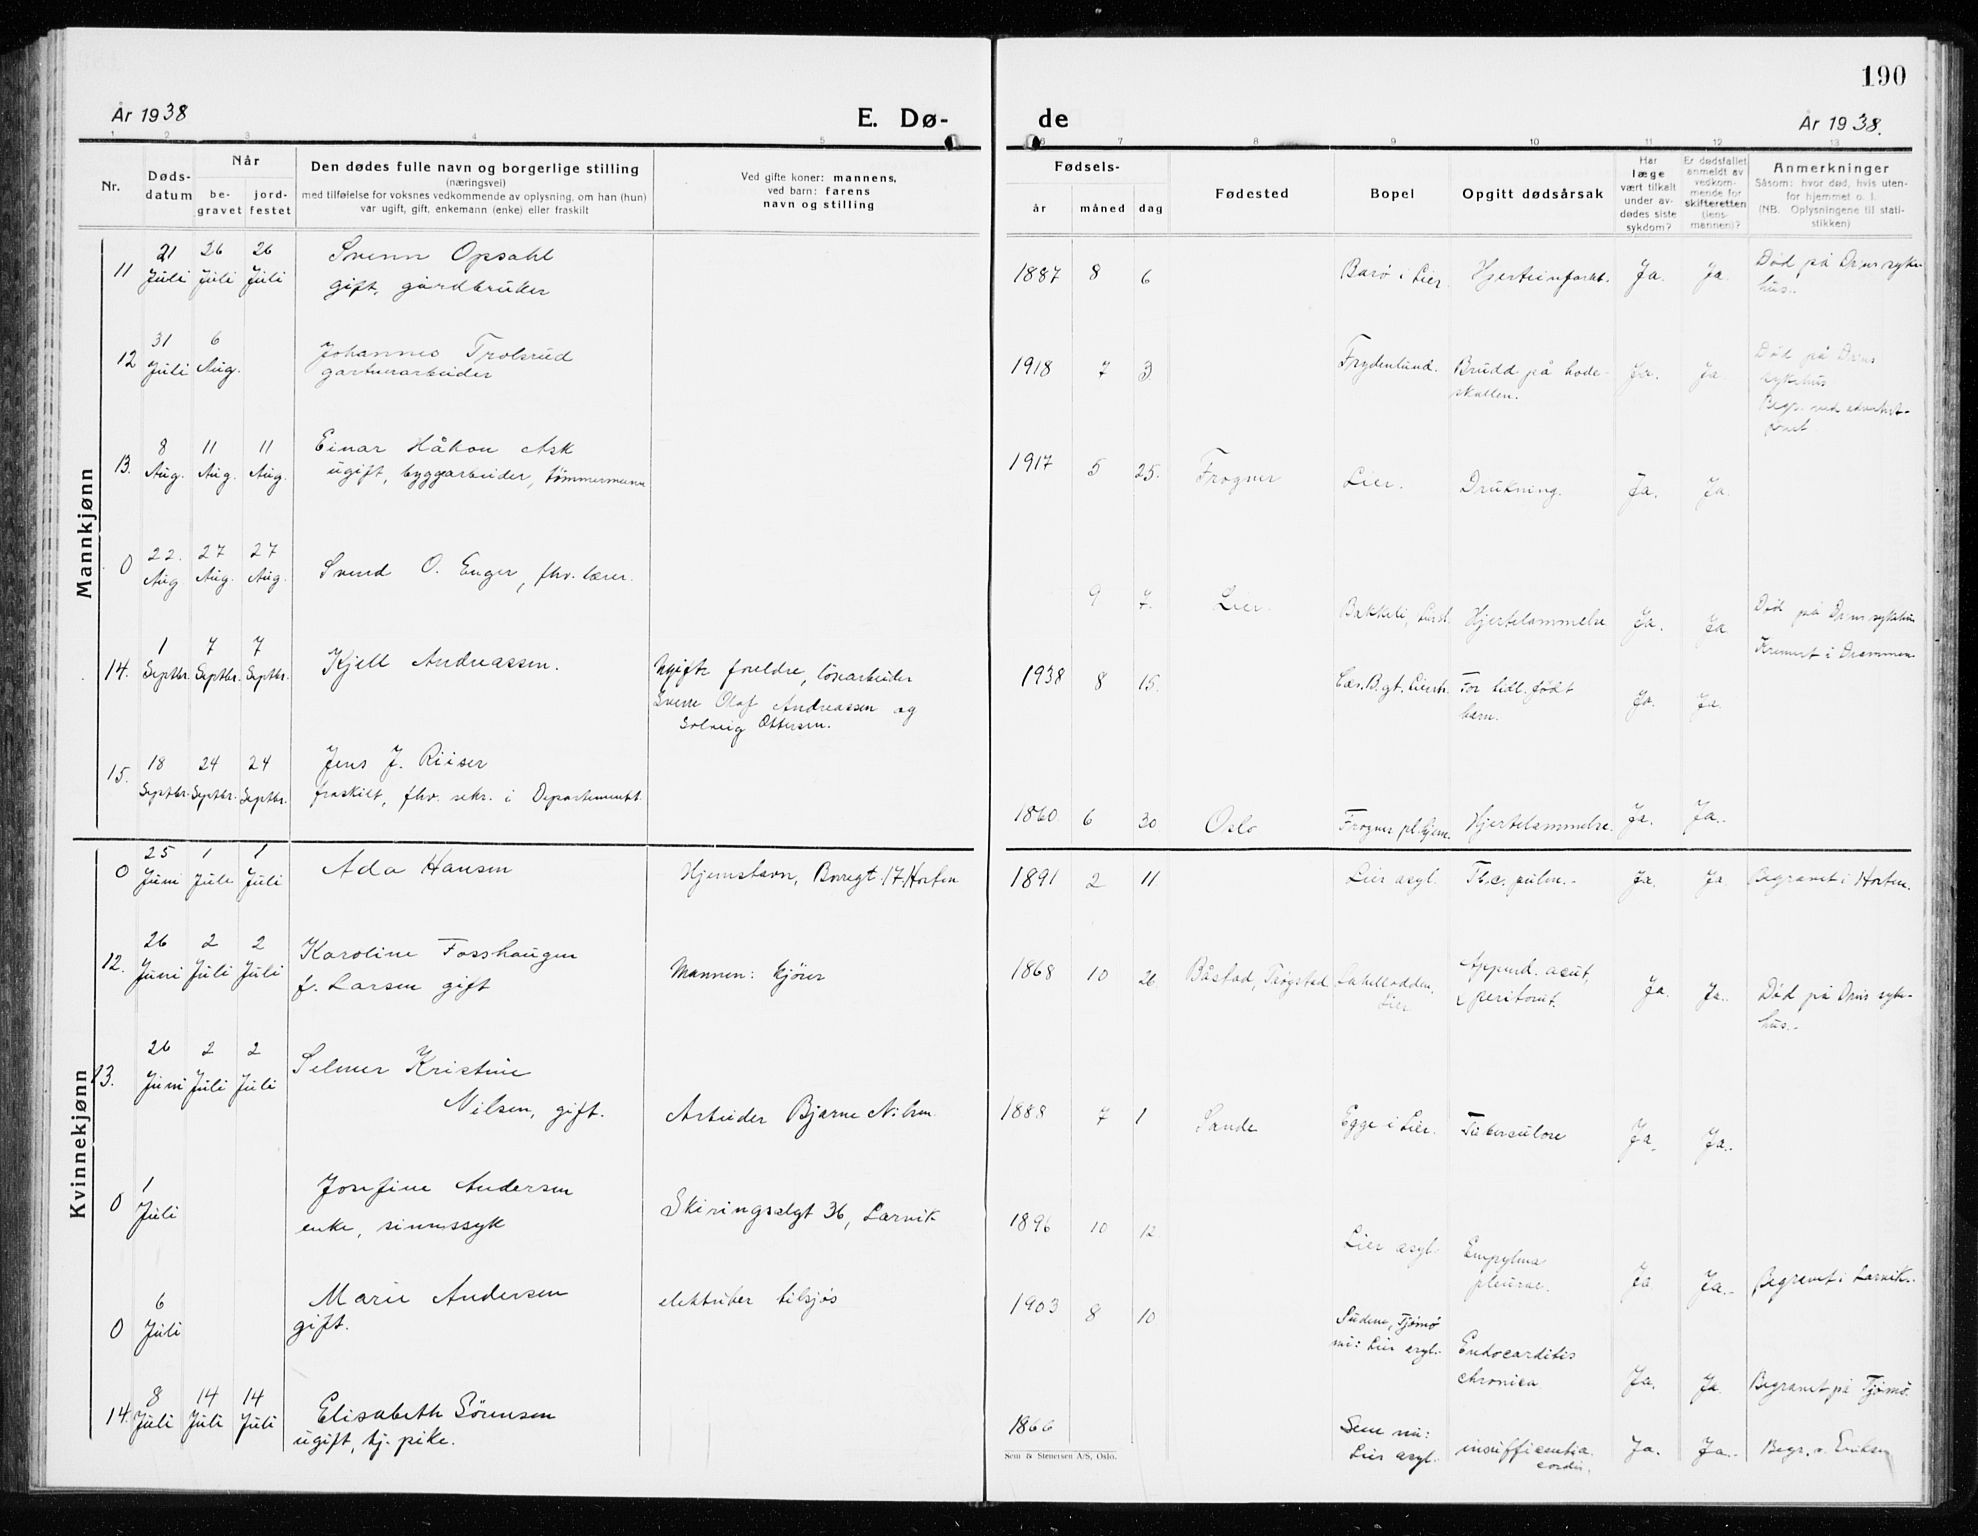 190
År 1938
E. Dø-
de
År 1938.
1 2 3 4 5 6 7 8 9 10 11 12 13
Nr.
Døds-
datum
Når
be-
gravet
jord-
festet
Den dødes fulle navn og borgerlige stilling
(næringsvei)
med tilføielse for voksnes vedkommende av oplysning, om han (hun)
var ugift, gift, enkemann (enke) eller fraskilt
Ved gifte koner: mannens,
ved barn: farens
navn og stilling
Fødsels-
år måned dag
Fødested
Bopel
Opgitt dødsårsak
Har
læge
vært tilkalt
under av-
dødes siste
sykdom?
Er dødsfallet
anmeldt av
vedkom-
mende for
skifteretten
(lens-
mannen)?
Anmerkninger
Såsom: hvor død, hvis uten-
for hjemmet o. l.
(NB. Oplysningene til stati-
stikken)
Mannkjønn
11 21 Juli 26 Juli 26 Juli
Svenn Opsahl
gift, gårdbruker
1887 8 6 Barø i Lier. Hjerteinfarkt. Ja. Ja.
Død på Drms syke-
hus.
12 31 Juli 6 Aug.
Johannes Trolsrud
gartnerarbeider
1918 7 3 Frydenlund. Brudd på hode-
skallen. Ja. Ja.
Død på Drms
sykehus
Begr. ved
13. 8 Aug. 11 Aug. 11 Aug.
Einar Håkon Ask
ugift, byggarbeider, tømmermann
1917 5 25. Frogner Lier. Drukning. Ja. Ja.
0 22. Aug 27 Aug. 27 Aug.
Svend O. Enger, fhv. lærer.
9 7. Lier. Bakkeli, Hjertelammelse Ja. Ja
Død på Drms sykehus
Kremert i Drammen
14. 1 Septbr. 7 Septbr. 7 Septbr.
Kjell Andreassen.
Ugifte foreldre, løsarbeider
Sverre Olaf Andreassen og
Solveig Ottersen.
1938 8 15. For tidl. født
barn. Ja. Ja.
15. 18 Septbr. 24 Septbr. 24 Septbr.
Jens J. Riiser
fraskilt, fhv. sekr. i Departementet
1860. 6 30 Oslo Frogner pl.hjem. Hjertelammelse. Ja. Ja.
Kvinnekjønn
0 25 Juni 1 Juli 1 Juli
Ada Hansen
Hjemstavn, Borregt 17, Horten
1891 2 11 Lier asyl. Tb.c. pulm. Ja. Ja.
Begravet i Horten.
12. 26 Juni 2 Juli 2 Juli
Karoline Fosshaugen
f. Larsen gift
Mannen: kjører
1868 10 26 Båstad, Trøgstad Lier
Append. acut,
peritonit. Ja. Ja.
Død på Drms syke-
hus.
13. 26 Juni 2 Juli 2 Juli
Selmer Kristine
Nilsen, gift.
Arbeider Bjarne Nilsen
1888 7 1 Sande Egge i Lier. Tuberculose Ja. Ja.
0 1 Juli
Josefine Andersen
enke, sinnssyk
Skiringsalgt 36, Larvik
1896 10 12 Lier asyl. Empylma
pleurae. Ja Ja.
Begravet i Larvik.
0 6 Juli
Marie Andersen
gift.
elektriker tilsjøs
1903 8 10 Tjømø
nu: Lier asyl. Endocarditis
chronica Ja. Ja.
Begravet på Tjømø.
14. 8 Juli 14 Juli 14 Juli
Elisabeth Sørensen
ugift, tj. pike.
1866 Sem nu:
Lier asyl. insufficentia
cordis. Ja. Ja.
Begr. v. Eriksen
Sem & Stenersen A/S, Oslo.